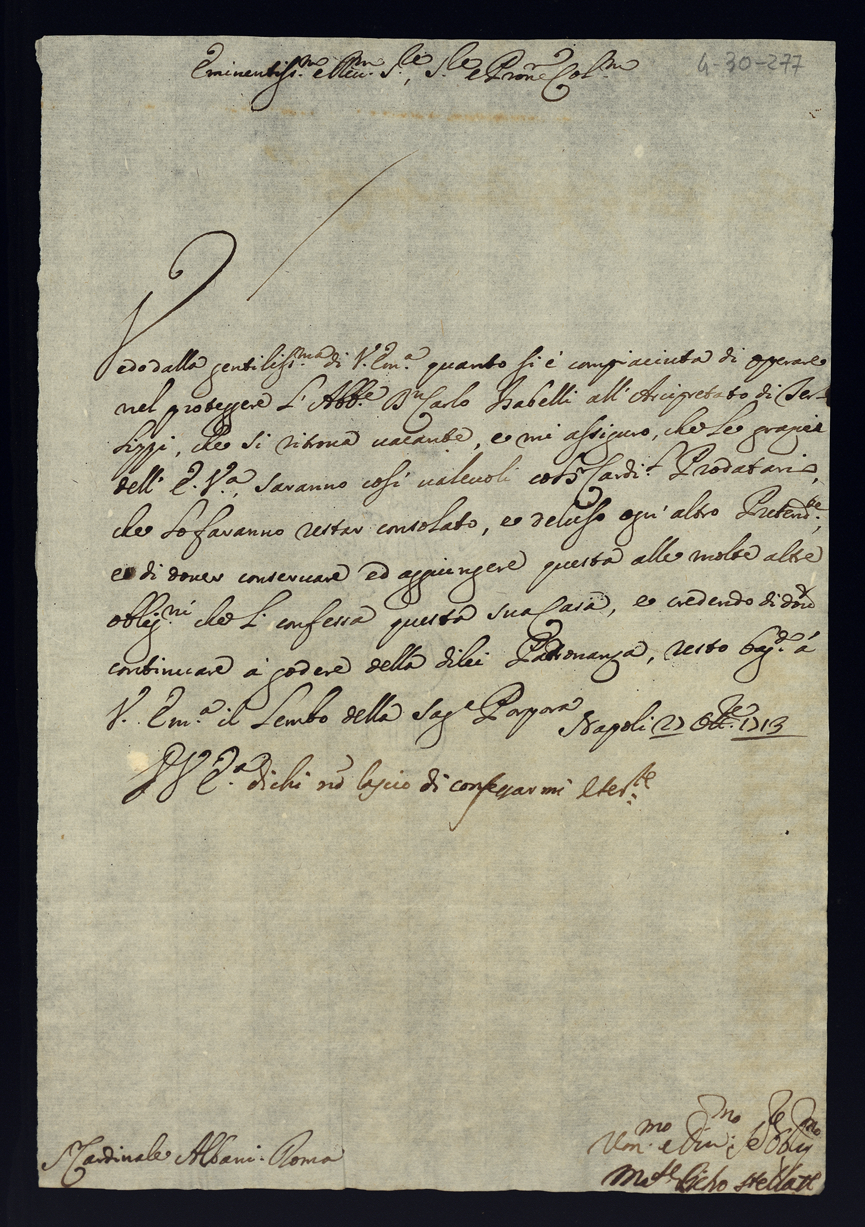 Eminentiss.mo e Rev.mo S.re, S.re e Pron Col.mo
4-30-277
Vedo dalla gentiliss.ma di V. Em.a quanto si è compiaciuta di operare
nel proteggere l'Abb.e Dn Carlo Isabelli all'Arcipretato di Ter
lizzi, che si ritrova vacante, e mi assiguro, che le grazie
dell'E. V.a, saranno così valevoli col Sr Card.l Prodatario,
che lo faranno restar consolato, e deluso ogn'altro Pretend.te,
e di dover conservare ed aggiungere questa alle molte altre
oblig.ni che Li confessa questa sua Casa, e credendo di dover
continuare à godere della di lei Padronanza, resto Bag.do à
V. Em.a il Lembo della Sag.e Porpora Napoli 27 Ott.re 1713
D V. E.a di chi nō lascio di confessarmi
S.r Cardinale Albani. Roma
Um.mo e Div.mo Se.re Obb.mo